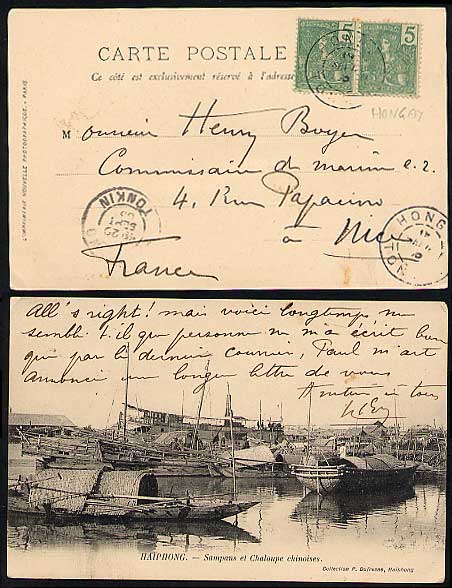 CARTE POSTALE
Ce côté est exclusivement réservé à l'adresse
5 5
HONGAY
COMPAGNIE NOUVELLE PHOTOGRAPHIQUE - PARIS
Monsieur Henry Boyer
Commissaire de marine e.r.
4, Rue
à Nice
France
TONKIN
HONG
All's right! mais voici longtemps me
semble t-il que personne ne m'a écrit
que par le dernier courrier, Paul m'
une longue lettre de vous
à tous
HAIPHONG. — Sampans et Chaloupe chinoises.
Collection P. Dufresne, Haiphong